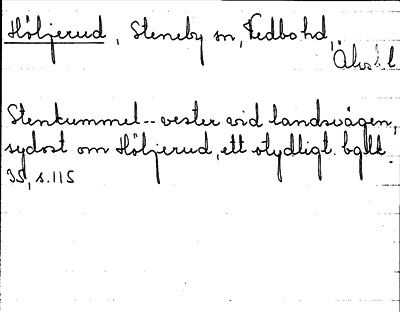 Höljerud, Steneby sn, Vedbo hd,
Älvsb l
Stenkummel -- vester vid landsvägen,
sydost om Höljerud, ett otydligt. bglk.
35, s. 115